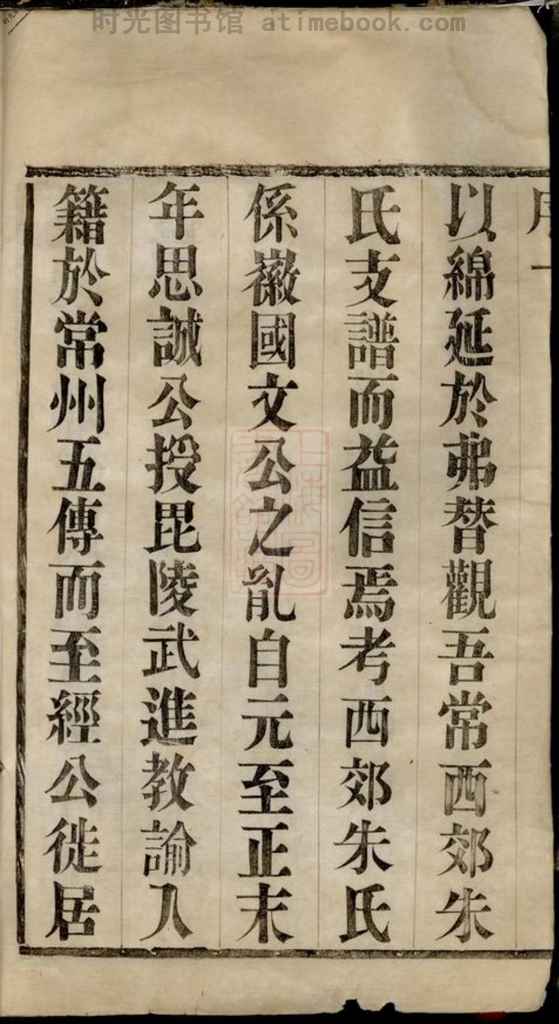 时光图书馆 atimebook.com
以綿延於弗替觀吾常西郊朱
氏支譜而益信焉考西郊朱氏
係徽國文公之胤自元至正末
年思誠公授毘陵武進教諭入
籍於常州五傳而至經公徙居